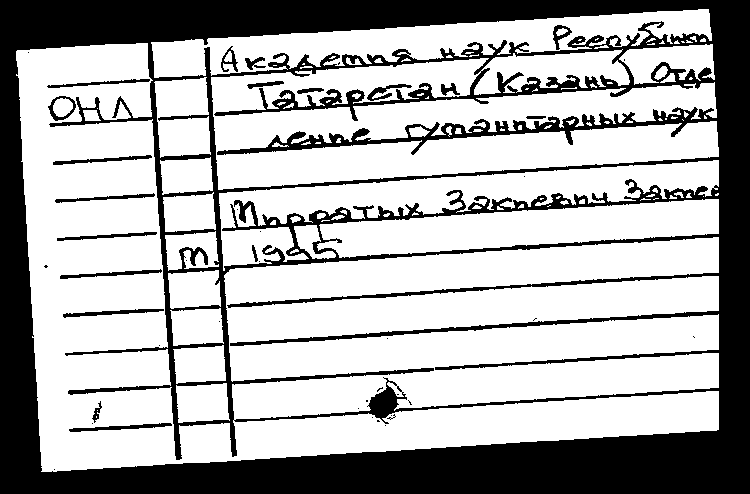 Академия наук Республики
ОНЛ Татарстан (Казань) Отде
ление гуманитарных наук
Мирфатых Закиевич Закиев
М., 1995